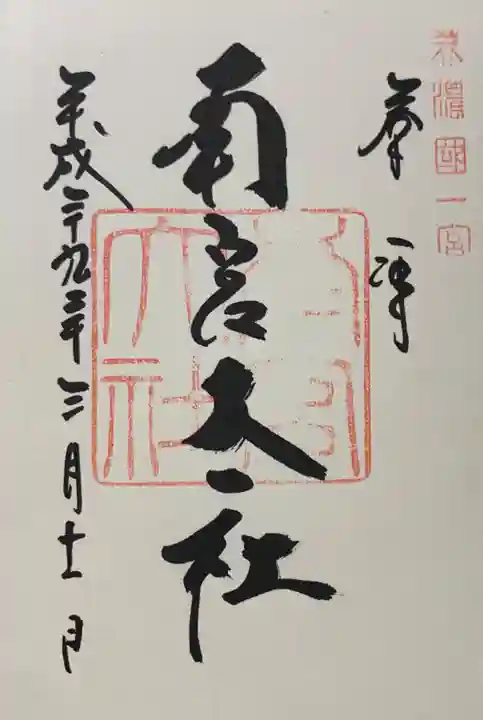 美濃國一宮
奉拝
南宮大社
南宮大社
平成二十九年三月十一日